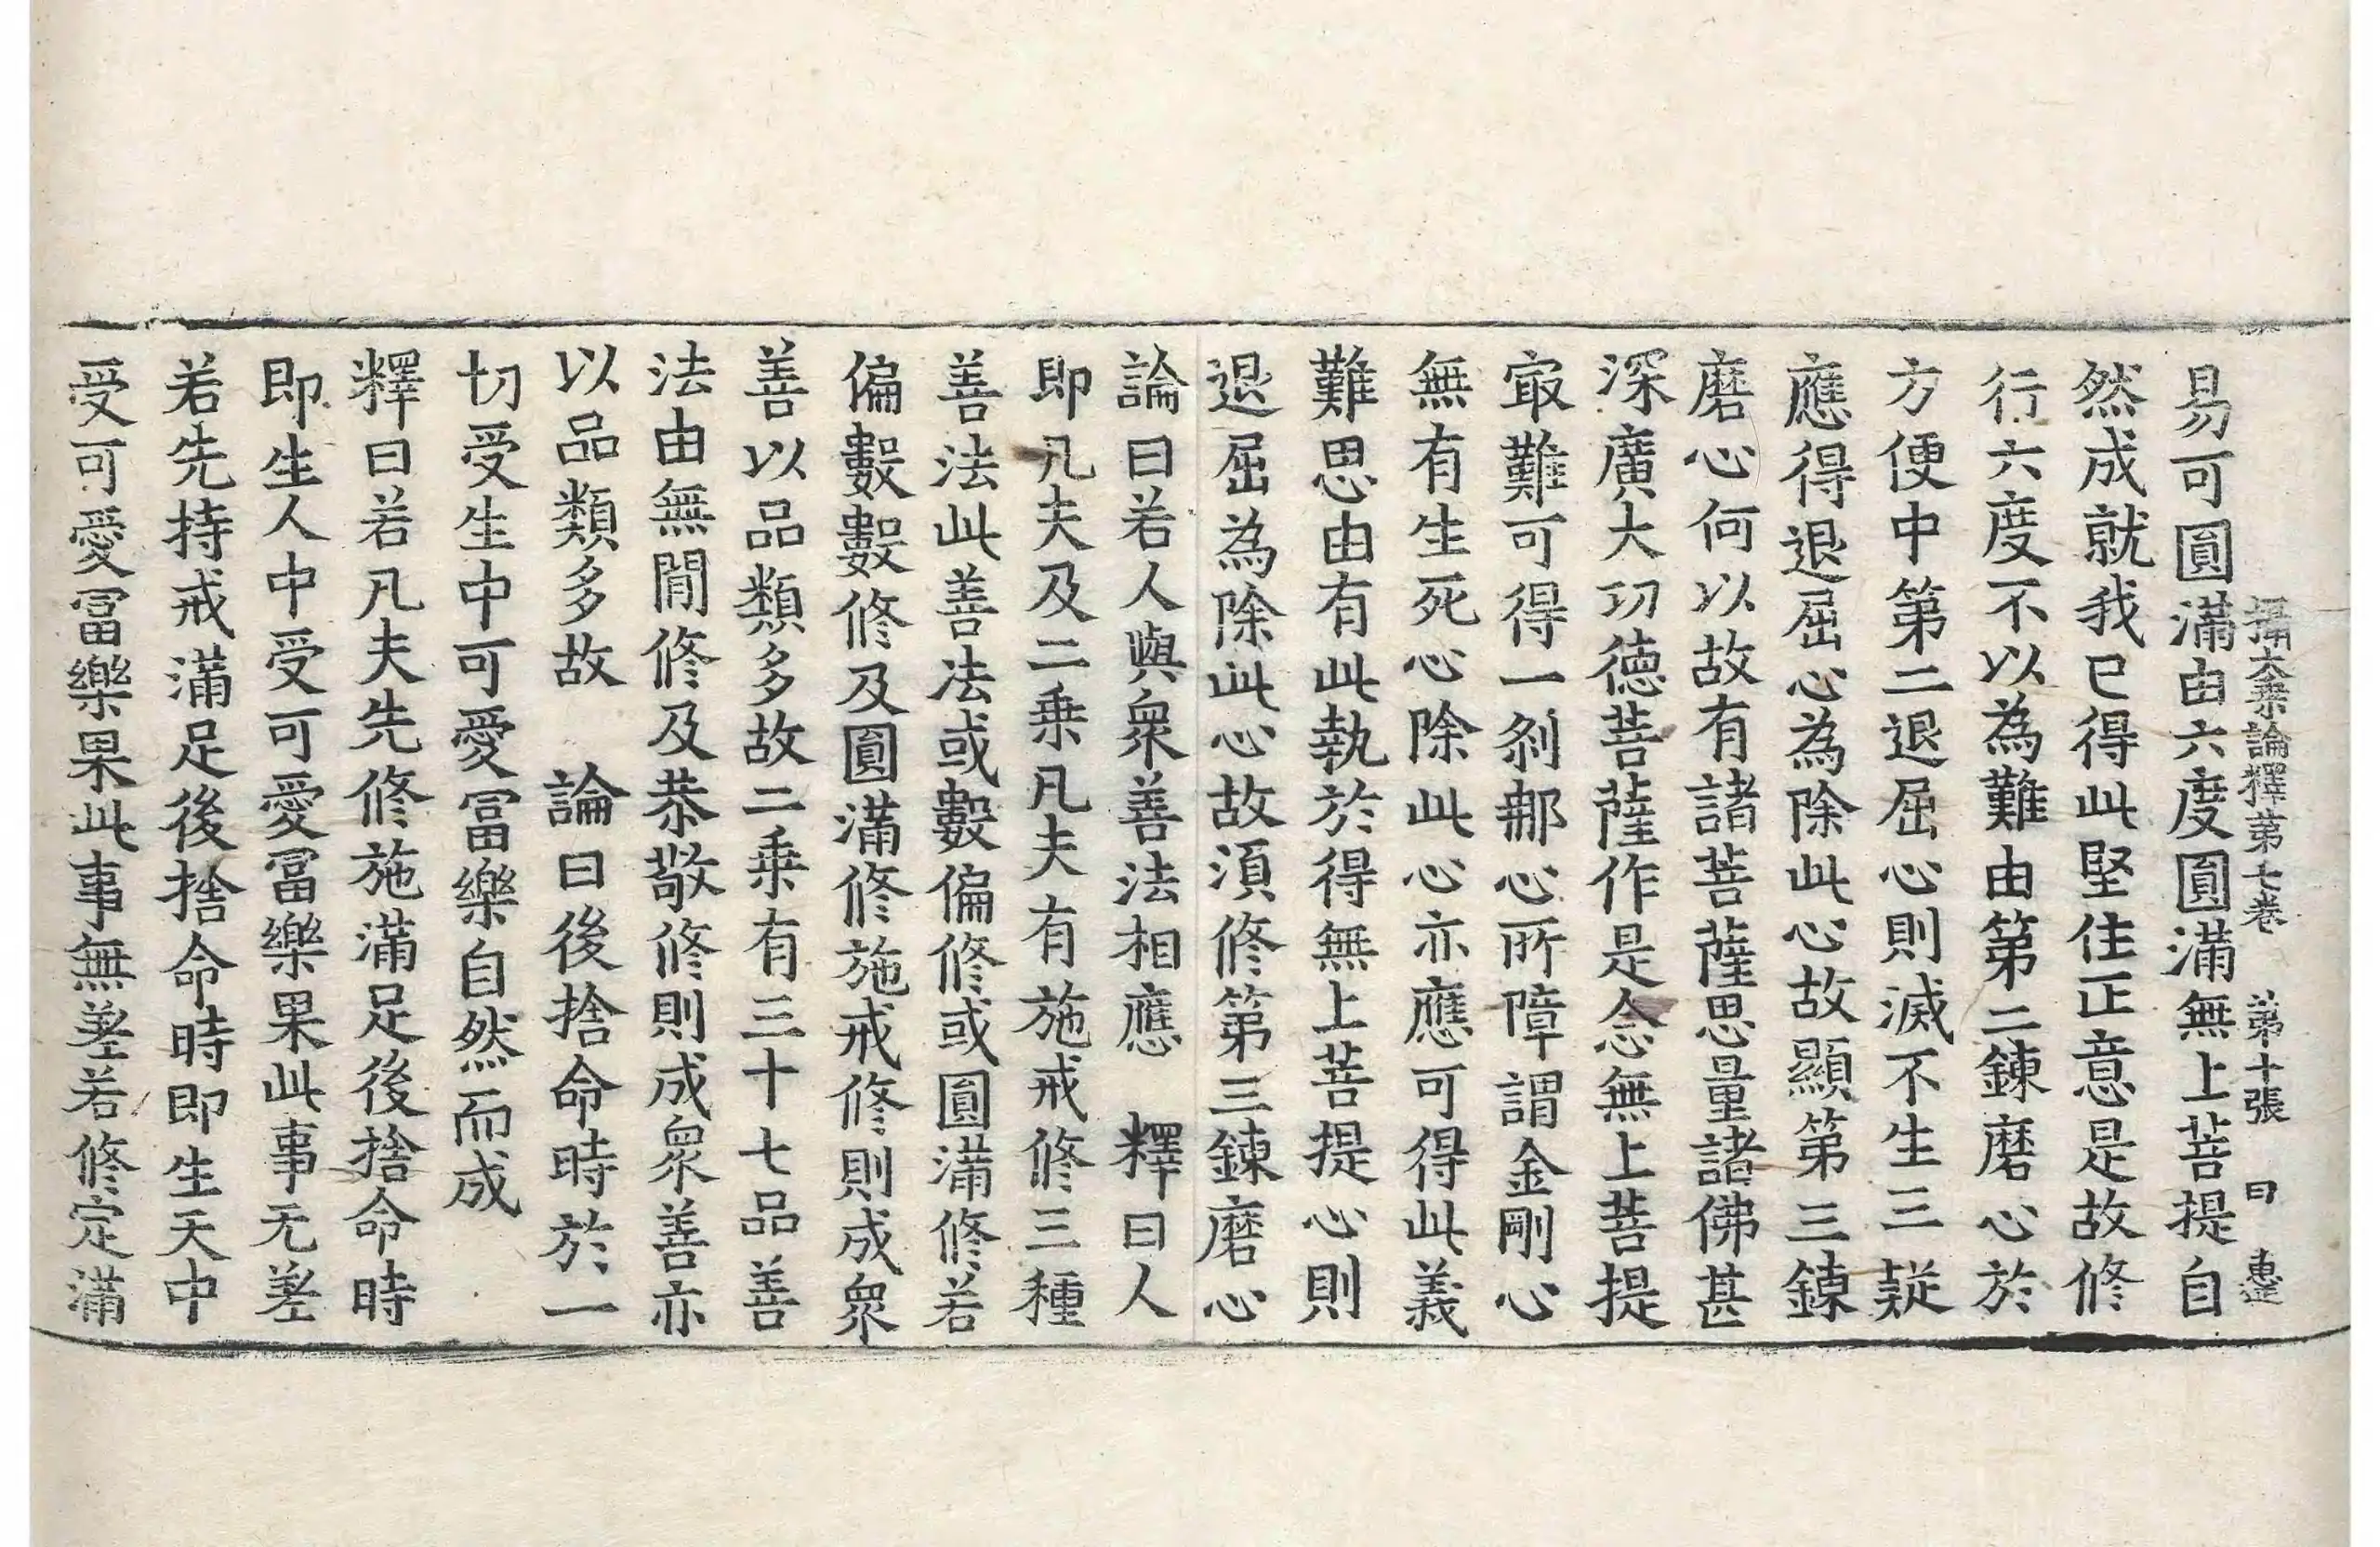 攝大乗論釋第七卷　第十張　曰　惠㢠
易可圓滿由六度圓滿無上菩提自
然成就我已得此堅住正意是故修
行六度不以為難由第二鍊磨心於
方便中第二退屈心則滅不生三疑
應得退屈心為除此心故顯第三鍊
磨心何以故有諸菩薩思量諸佛甚
深廣大功德菩薩作是念無上菩提
冣難可得一剎那心所障謂金剛心
無有生死心除此心亦應可得此義
難思由有此執於得無上菩提心則
退屈為除此心故湏修第三鍊磨心
論曰若人與衆善法相應　釋曰人
即凡夫及二乗凡夫有施戒修三種
善法此善法或數偏修或圓滿修若
偏數數修及圓滿修施戒修則成衆
善以品類多故二乗有三十七品善
法由無閒修及恭敬修則成衆善亦
以品類多故　論曰後捨命時於一
切受生中可愛冨樂自然而成
釋曰若凡夫先修施滿足後捨命時
即生人中受可愛冨樂果此事无差
若先持戒滿足後捨命時即生天中
受可愛冨樂果此事無差若修定滿